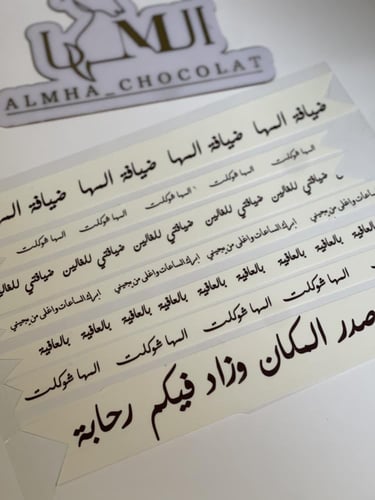 ALMHA_CHOCOLAT
ضيافة المها ضيافة المها ضيافة المها ضيافة المها
المها شوكلت المها شوكلت المها شوكلت المها شوكلت
ضيافتي للغالين ضيافتي للغالين ضيافتي للغالين ضيافتي للغالين
ابرك الساعات واغلى من يجيني ابرك الساعات واغلى من يجيني ابرك الساعات واغلى من يجيني
بالعافية بالعافية بالعافية بالعافية بالعافية بالعافية بالعافية
المها شوكلت المها شوكلت المها شوكلت المها شوكلت
صدر المكان وزاد فيكم رحابة